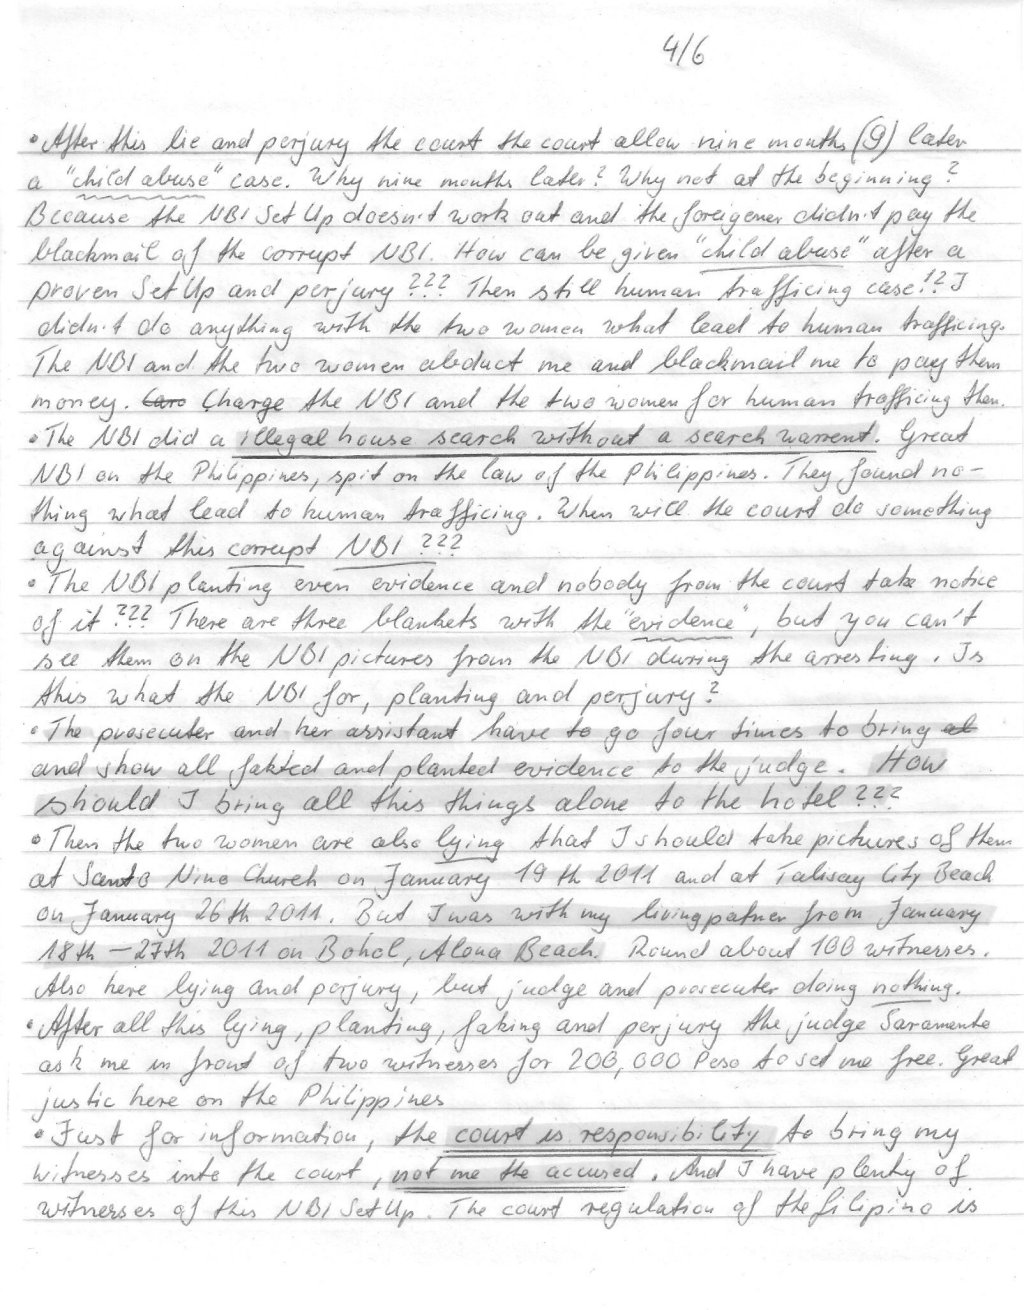 4/6
• After this lie and perjury the court the court allow nine months (9) later
a "child abuse" case. Why nine months later? Why not at the beginning?
Because the NBI Set Up doesn't work out and the foreigener didn't pay the
blackmail of the corrupt NBI. How can be given "child abuse" after a
proven SetUp and perjury??? Then still human trafficing case!? I
didn't do anything with the two women what lead to human trafficing.
The NBI and the two women abduct me and blackmail me to pay them
money. Caro Charge the NBI and the two women for human trafficing then.
• The NBI did a illegal house search without a search warrent. Great
NBI on the Philippines, spit on the law of the Philippines. They found no-
thing what lead to human trafficing. When will the court do something
against this corrupt NBI???
• The NBI planting even evidence and nobody from the court take notice
of it??? There are three blankets with the "evidence", but you can't
see them on the NBI pictures from the NBI during the arresting. Is
this what the NBI for, planting and perjury?
• The prosecuter and her assistant have to go four times to bring al
and show all fakted and planted evidence to the judge. How
should I bring all this things alone to the hotel???
• Then the two women are also lying that I should take pictures of them
at Santo Nino Church on January 19th 2011 and at Talisay City Beach
on January 26th 2011. But I was with my livingpatner from January
18th – 27th 2011 on Bohol, Alona Beach. Round about 100 witnesses.
Also here lying and perjury, but judge and prosecuter doing nothing.
• After all this lying, planting, faking and perjury the judge Saramento
ask me in front of two witnesses for 200,000 Peso to set me free. Great
justic here on the Philippines
• Just for information, the court is responsibility to bring my
witnesses into the court, not me the accused. And I have plenty of
witnesses of this NBI SetUp. The court regulation of the filipino is